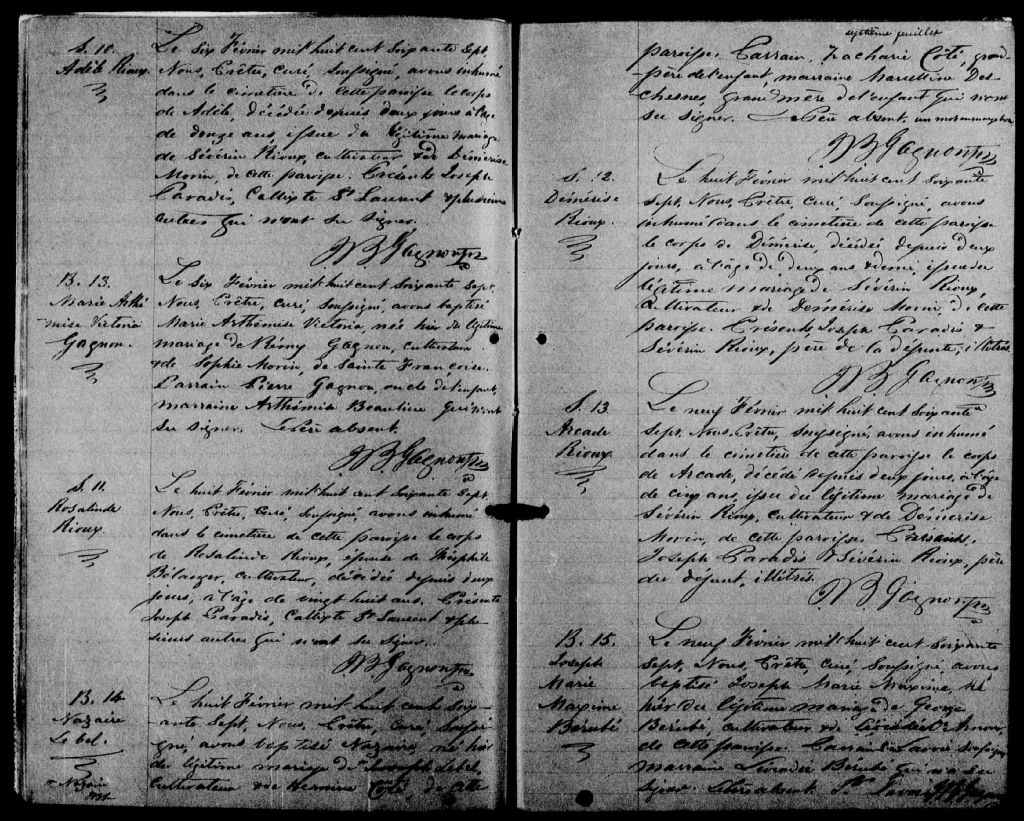 S. 10.
Adèle Rioux.
Le six Février mil huit cent soixante sept,
Nous, Prêtre, curé, soussigné, avons inhumé
dans le cimetière de cette paroisse le corps
de Adèle, décédée depuis deux jours à l'âge
de douze ans, issue du légitime mariage
de Sévérin Rioux, cultivateur & de Démérise
Morin, de cette paroisse. Présents Joseph
Paradis, Callixte St Laurent & plusieurs
autres qui n'ont su signer.
JB Gagnon Ptre
B. 13.
Marie Arthé
mise Victoria
Gagnon.
Le six Février mil huit cent soixante sept,
Nous, Prêtre, curé, soussigné, avons baptisé
Marie Arthémise Victoria, née hier du légitime
mariage de Rémy Gagnon, cultivateur
& de Sophie Morin, de Sainte Françoise.
Parrain Pierre Gagnon, oncle de l'enfant,
marraine Arthémise Beaulieu qui n'ont
su signer. Le père absent.
JB Gagnon Ptre
S. 11.
Rosalinde
Rioux.
Le huit Février mil huit cent soixante sept,
Nous, Prêtre, curé, soussigné, avons inhumé
dans le cimetière de cette paroisse le corps
de Rosalinde Rioux, épouse de Théophile
Bélanger, cultivateur, décédée depuis deux
jours, à l'âge de vingt huit ans. Présents
Joseph Paradis, Callixte St Laurent & plu-
sieurs autres qui n'ont su signer.
JB Gagnon Ptre
B. 14
Nazaire
Lebel.
Le huit Février mil huit cent soix-
ante sept, Nous, Prêtre, curé, soussi-
gné, avons baptisé Nazaire, né hier
du légitime mariage de Joseph Lebel,
cultivateur & de Hermine Côté, de cette
septième feuillet
paroisse. Parrain, Zacharie Côté, grand-
père de l'enfant, marraine Marcelline Des-
chesnes, grand'mère de l'enfant qui n'ont
su signer. Le père absent.
JB Gagnon Ptre
S. 12.
Démérise
Rioux.
Le huit Février mil huit cent soixante
sept, Nous, Prêtre, curé, soussigné, avons
inhumé dans le cimetière de cette paroisse
le corps de Démérise, décédée depuis deux
jours, à l'âge de deux ans & demi, issue du
légitime mariage de Sévérin Rioux,
cultivateur & de Démérise Morin, de cette
paroisse. Présents Joseph Paradis &
Sévérin Rioux, père de la défunte, illitrés.
JB Gagnon Ptre
S. 13.
Arcade
Rioux.
Le neuf Février mil huit cent soixante
sept, Nous, Prêtre, soussigné, avons inhumé
dans le cimetière de cette paroisse le corps
de Arcade, décédé depuis deux jours, à l'âge
de cinq ans, issu du légitime mariage de
Sévérin Rioux, cultivateur & de Démérise
Morin, de cette paroisse.
Joseph Paradis & Sévérin Rioux, père
du défunt, illitrés.
JB Gagnon Ptre
B. 15.
Joseph
Marie
Maxime
Bérubé
Le neuf Février mil huit cent soixante
sept, Nous, Prêtre, curé, soussigné, avons
baptisé Joseph Marie Maxime, né
hier du légitime mariage de George
Bérubé, cultivateur &
de cette paroisse. Parrain soussigné
marraine Bérubé qui n'a su
signer. Le père absent.